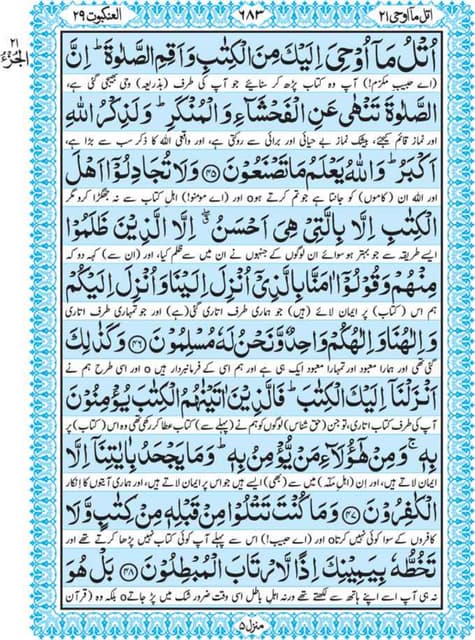 اتل ما اوحی ٢١
٦٨٣
العنكبوت ٢٩
٢١
الجزء
اُتْلُ مَآ اُوْحِیَ اِلَیْكَ مِنَ الْكِتٰبِ وَاَقِمِ الصَّلٰوةَ ؕ اِنَّ
(اے حبیبِ مکرّم!) آپ وہ کتاب پڑھ کر سنائیے جو آپ کی طرف (بذریعہ) وحی بھیجی گئی ہے،
الصَّلٰوةَ تَنْهٰی عَنِ الْفَحْشَآءِ وَالْمُنْكَرِ ؕ وَلَذِكْرُ اللّٰهِ
اور نماز قائم کیجئے، بیشک نماز بے حیائی اور برائی سے روکتی ہے، اور واقعی اللہ کا ذکر سب سے بڑا ہے،
اَكْبَرُ ؕ وَاللّٰهُ یَعْلَمُ مَا تَصْنَعُوْنَ ﴿۴۵﴾ وَلَا تُجَادِلُوْۤا اَهْلَ
اور اللہ ان (کاموں) کو جانتا ہے جو تم کرتے ہو o اور (اے مومنو!) اہلِ کتاب سے نہ جھگڑا کرو مگر
الْكِتٰبِ اِلَّا بِالَّتِیْ هِیَ اَحْسَنُ ۖ اِلَّا الَّذِیْنَ ظَلَمُوْا
ایسے طریقہ سے جو بہتر ہو سوائے ان لوگوں کے جنہوں نے ان میں سے ظلم کیا، اور (ان سے) کہہ دو کہ
مِنْهُمْ وَقُوْلُوْۤا اٰمَنَّا بِالَّذِیْۤ اُنْزِلَ اِلَیْنَا وَاُنْزِلَ اِلَیْكُمْ
ہم اس (کتاب) پر ایمان لائے (ہیں) جو ہماری طرف اتاری گئی (ہے) اور جو تمہاری طرف اتاری
وَاِلٰهُنَا وَاِلٰهُكُمْ وَاحِدٌ وَّنَحْنُ لَهٗ مُسْلِمُوْنَ ﴿۴۶﴾ وَكَذٰلِكَ
گئی تھی اور ہمارا معبود اور تمہارا معبود ایک ہی ہے اور ہم اسی کے فرمانبردار ہیں o اور اسی طرح ہم نے
اَنْزَلْنَاۤ اِلَیْكَ الْكِتٰبَ ؕ فَالَّذِیْنَ اٰتَیْنٰهُمُ الْكِتٰبَ یُؤْمِنُوْنَ
آپ کی طرف کتاب اتاری، تو جن (حق شناس) لوگوں کو ہم نے (پہلے سے) کتاب عطا کر رکھی تھی وہ اس (کتاب) پر
بِهٖ ۚ وَمِنْ هٰۤؤُلَآءِ مَنْ یُّؤْمِنُ بِهٖ ؕ وَمَا یَجْحَدُ بِاٰیٰتِنَاۤ اِلَّا
ایمان لاتے ہیں، اور ان (اہلِ مکّہ) میں سے (بھی) ایسے ہیں جو اس پر ایمان لاتے ہیں، اور ہماری آیتوں کا اِنکار
الْكٰفِرُوْنَ ﴿۴۷﴾ وَمَا كُنْتَ تَتْلُوْا مِنْ قَبْلِهٖ مِنْ كِتٰبٍ وَّلَا
کافروں کے سوا کوئی نہیں کرتا o اور (اے حبیب!) اس سے پہلے آپ کوئی کتاب نہیں پڑھا کرتے تھے اور
تَخُطُّهٗ بِیَمِیْنِكَ اِذًا لَّارْتَابَ الْمُبْطِلُوْنَ ﴿۴۸﴾ بَلْ هُوَ
نہ ہی آپ اسے اپنے ہاتھ سے لکھتے تھے ورنہ اہلِ باطل اسی وقت ضرور شک میں پڑ جاتے o بلکہ وہ (قرآن
منزل ٥